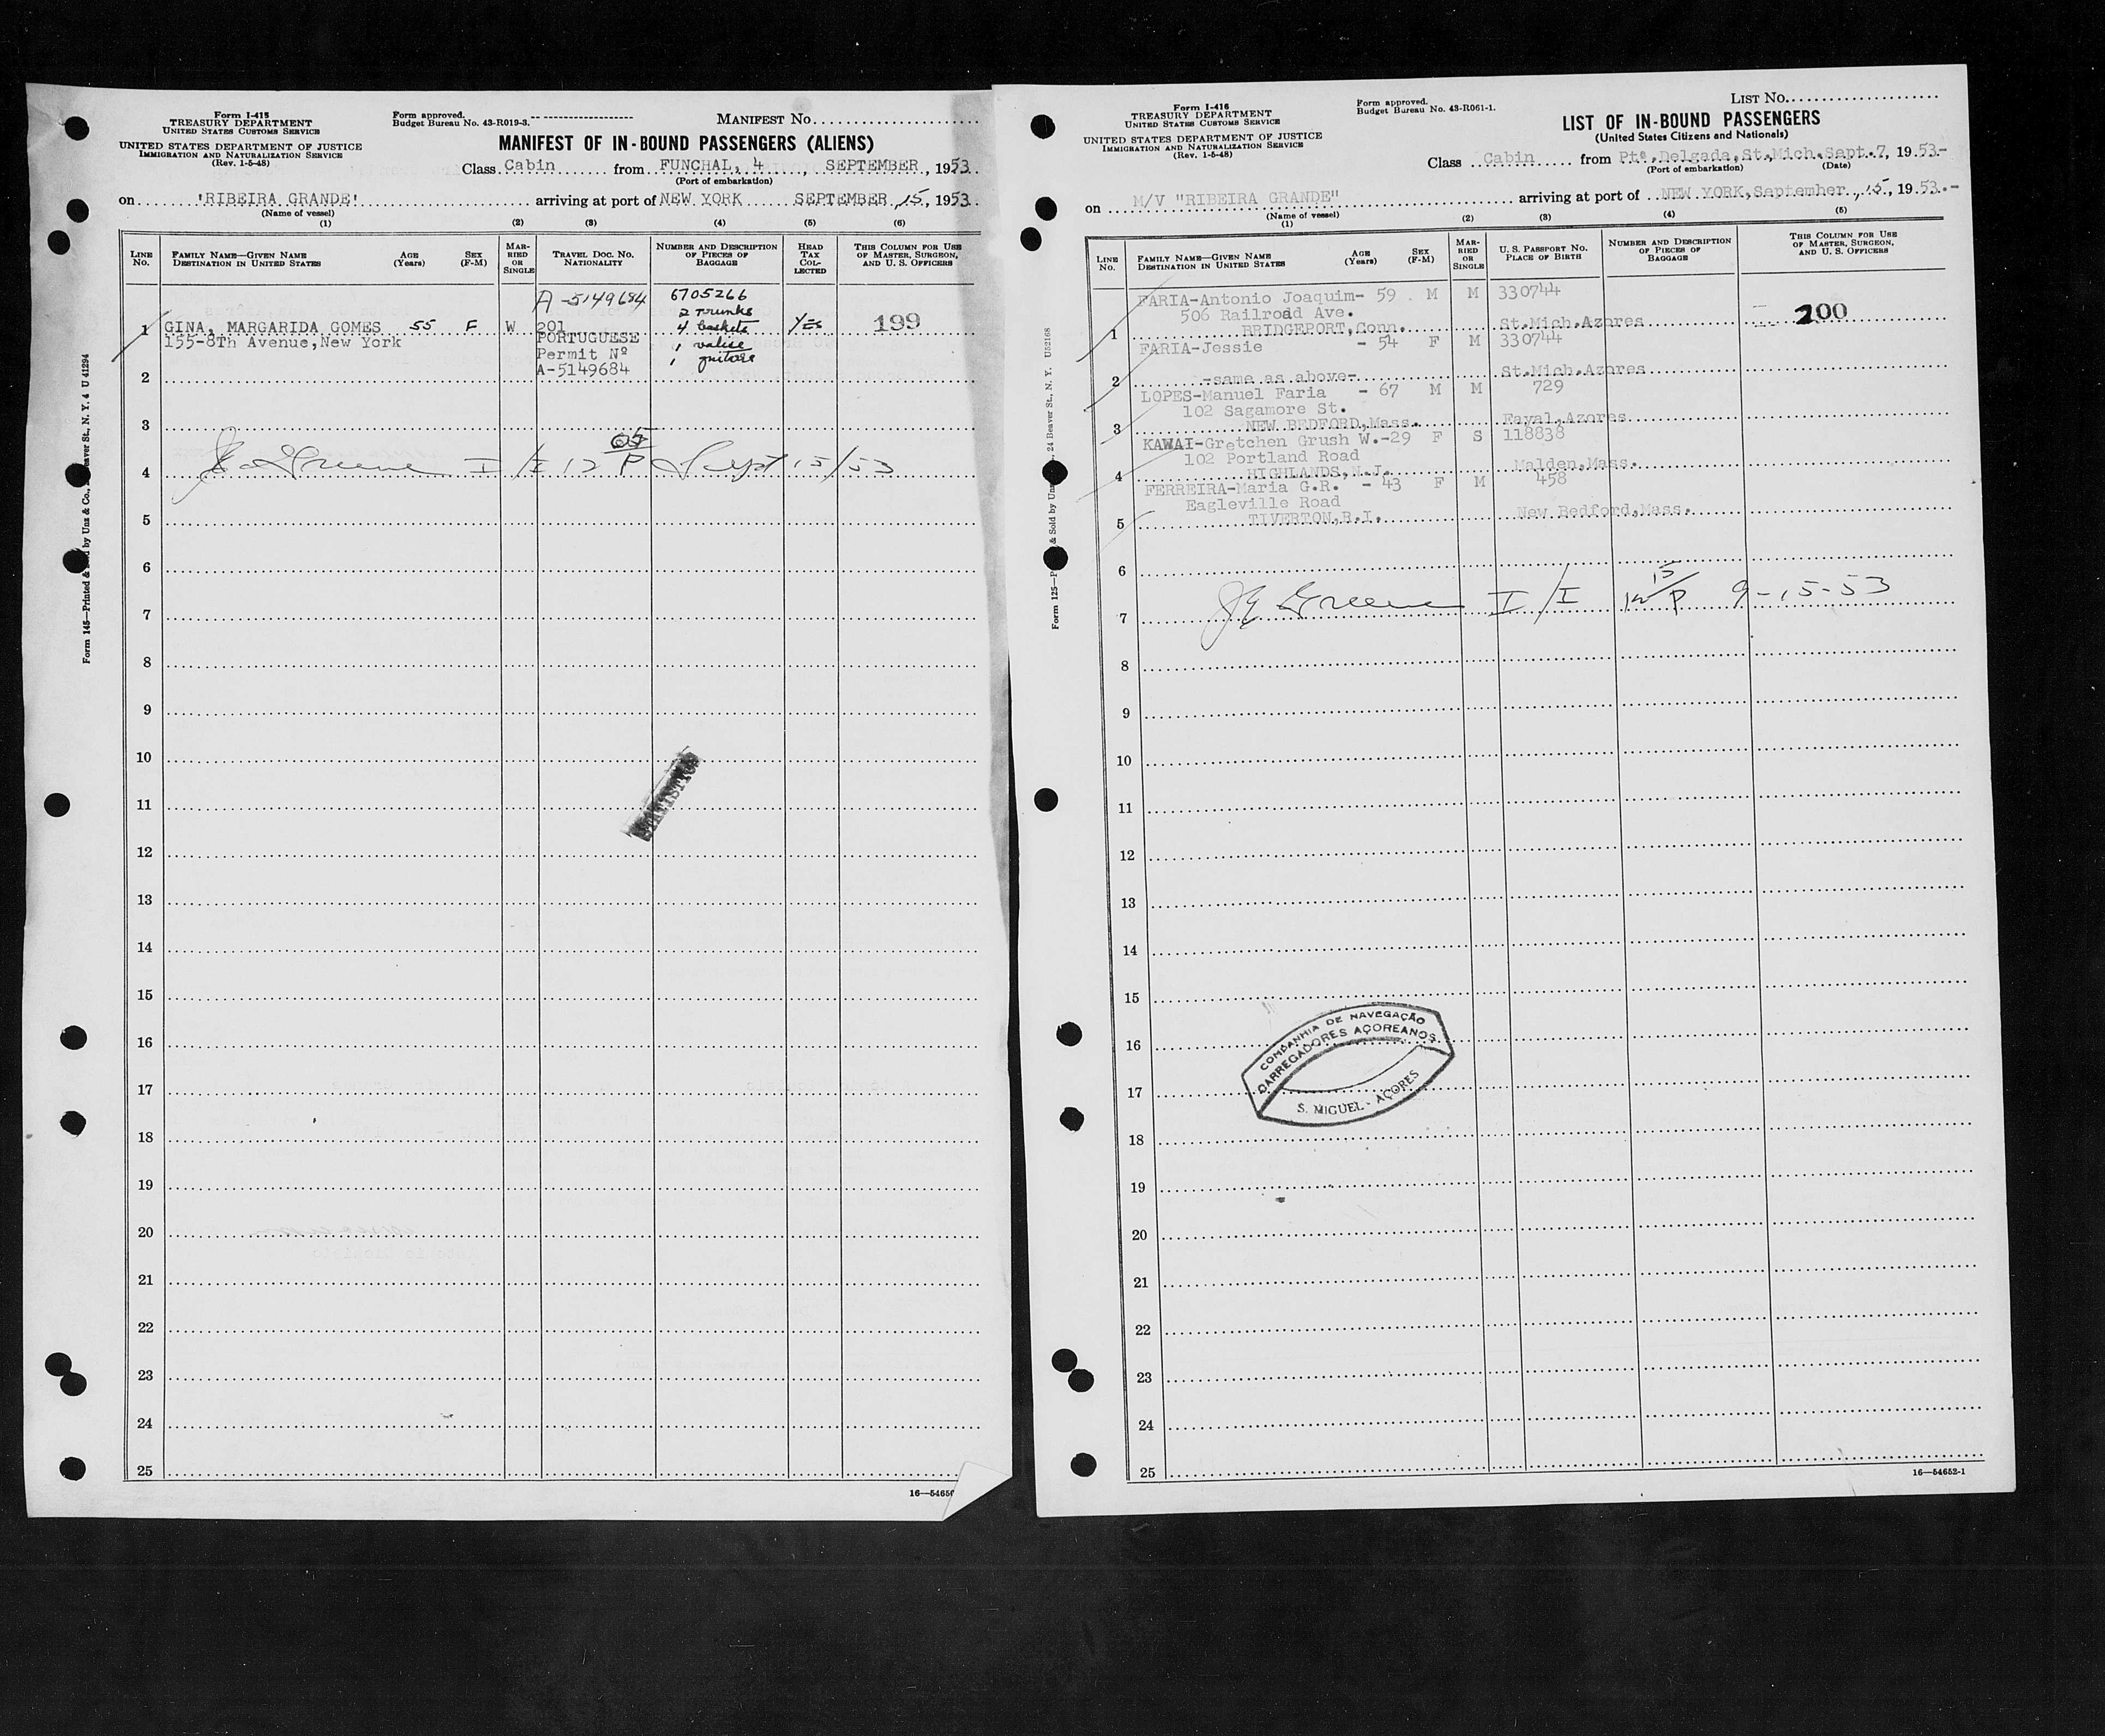 Form I-415
TREASURY DEPARTMENT
UNITED STATES CUSTOMS SERVICE
UNITED STATES DEPARTMENT OF JUSTICE
IMMIGRATION AND NATURALIZATION SERVICE
(Rev. 1-5-48)
Form approved.
Budget Bureau No. 43-R019-3.
MANIFEST No.
MANIFEST OF IN-BOUND PASSENGERS (ALIENS)
Class Cabin from FUNCHAL, 4, SEPTEMBER, 1953
(Port of embarkation)
on 'RIBEIRA GRANDE' arriving at port of NEW YORK SEPTEMBER 15, 1953
(Name of vessel)
(1) (2) (3) (4) (5) (6)
LINE No.
FAMILY NAME—GIVEN NAME
DESTINATION IN UNITED STATES
AGE (Years)
SEX (F-M)
MARRIED OR SINGLE
TRAVEL DOC. NO.
NATIONALITY
NUMBER AND DESCRIPTION OF PIECES OF BAGGAGE
HEAD TAX COLLECTED
THIS COLUMN FOR USE OF MASTER, SURGEON, AND U. S. OFFICERS
A-5149684 6705266
2 trunks
1 GINA, MARGARIDA GOMES 55 F W 201 4 baskets YES 199
155-8Th Avenue,New York PORTUGUESE 1 valise
Permit Nº 1 guitare
2 A-5149684
3
4 Greene I/I 12 05/P Sept 15/53
5
6
7
8
9
10
11
STATISTICS
12
13
14
15
16
17
18
19
20
21
22
23
24
25
Form 145—Printed &
by Unz & Co.,
St., N. Y. 4 U 41294
Form I-416
TREASURY DEPARTMENT
UNITED STATES CUSTOMS SERVICE
UNITED STATES DEPARTMENT OF JUSTICE
IMMIGRATION AND NATURALIZATION SERVICE
(Rev. 1-5-48)
Form approved.
Budget Bureau No. 43-R061-1.
LIST No.
LIST OF IN-BOUND PASSENGERS
(United States Citizens and Nationals)
Class Cabin from Ptª.Delgada,St.Mich.Sept.7, 1953-
(Port of embarkation) (Date)
on M/V "RIBEIRA GRANDE" arriving at port of NEW YORK,September 15, 1953.-
(Name of vessel)
(1) (2) (3) (4) (5)
LINE No.
FAMILY NAME—GIVEN NAME
DESTINATION IN UNITED STATES
AGE (Years)
SEX (F-M)
MARRIED OR SINGLE
U. S. PASSPORT NO.
PLACE OF BIRTH
NUMBER AND DESCRIPTION OF PIECES OF BAGGAGE
THIS COLUMN FOR USE OF MASTER, SURGEON, AND U. S. OFFICERS
FARIA-Antonio Joaquim- 59 M M 330744
506 Railroad Ave. 200
1 BRIDGEPORT,Conn. St.Mich.Azores
FARIA-Jessie - 54 F M 330744
2 -same as above- St.Mich.Azores
LOPES-Manuel Faria - 67 M M 729
102 Sagamore St.
3 NEW BEDFORD,Mass. Fayal,Azores
KAWAI-Gretchen Grush W.-29 F S 118838
102 Portland Road
4 HIGHLANDS,N.J. Malden,Mass.
FERREIRA-Maria G.R. - 43 F M 458
Eagleville Road
5 TIVERTON,R.I. New Bedford,Mass.
6
7 Greene I/I 12 15/P 9-15-53
8
9
10
11
12
13
14
15
COMPANHIA DE NAVEGAÇÃO
CARREGADORES AÇOREANOS
16
17
S. MIGUEL - AÇORES
18
19
20
21
22
23
24
25
16—54652-1